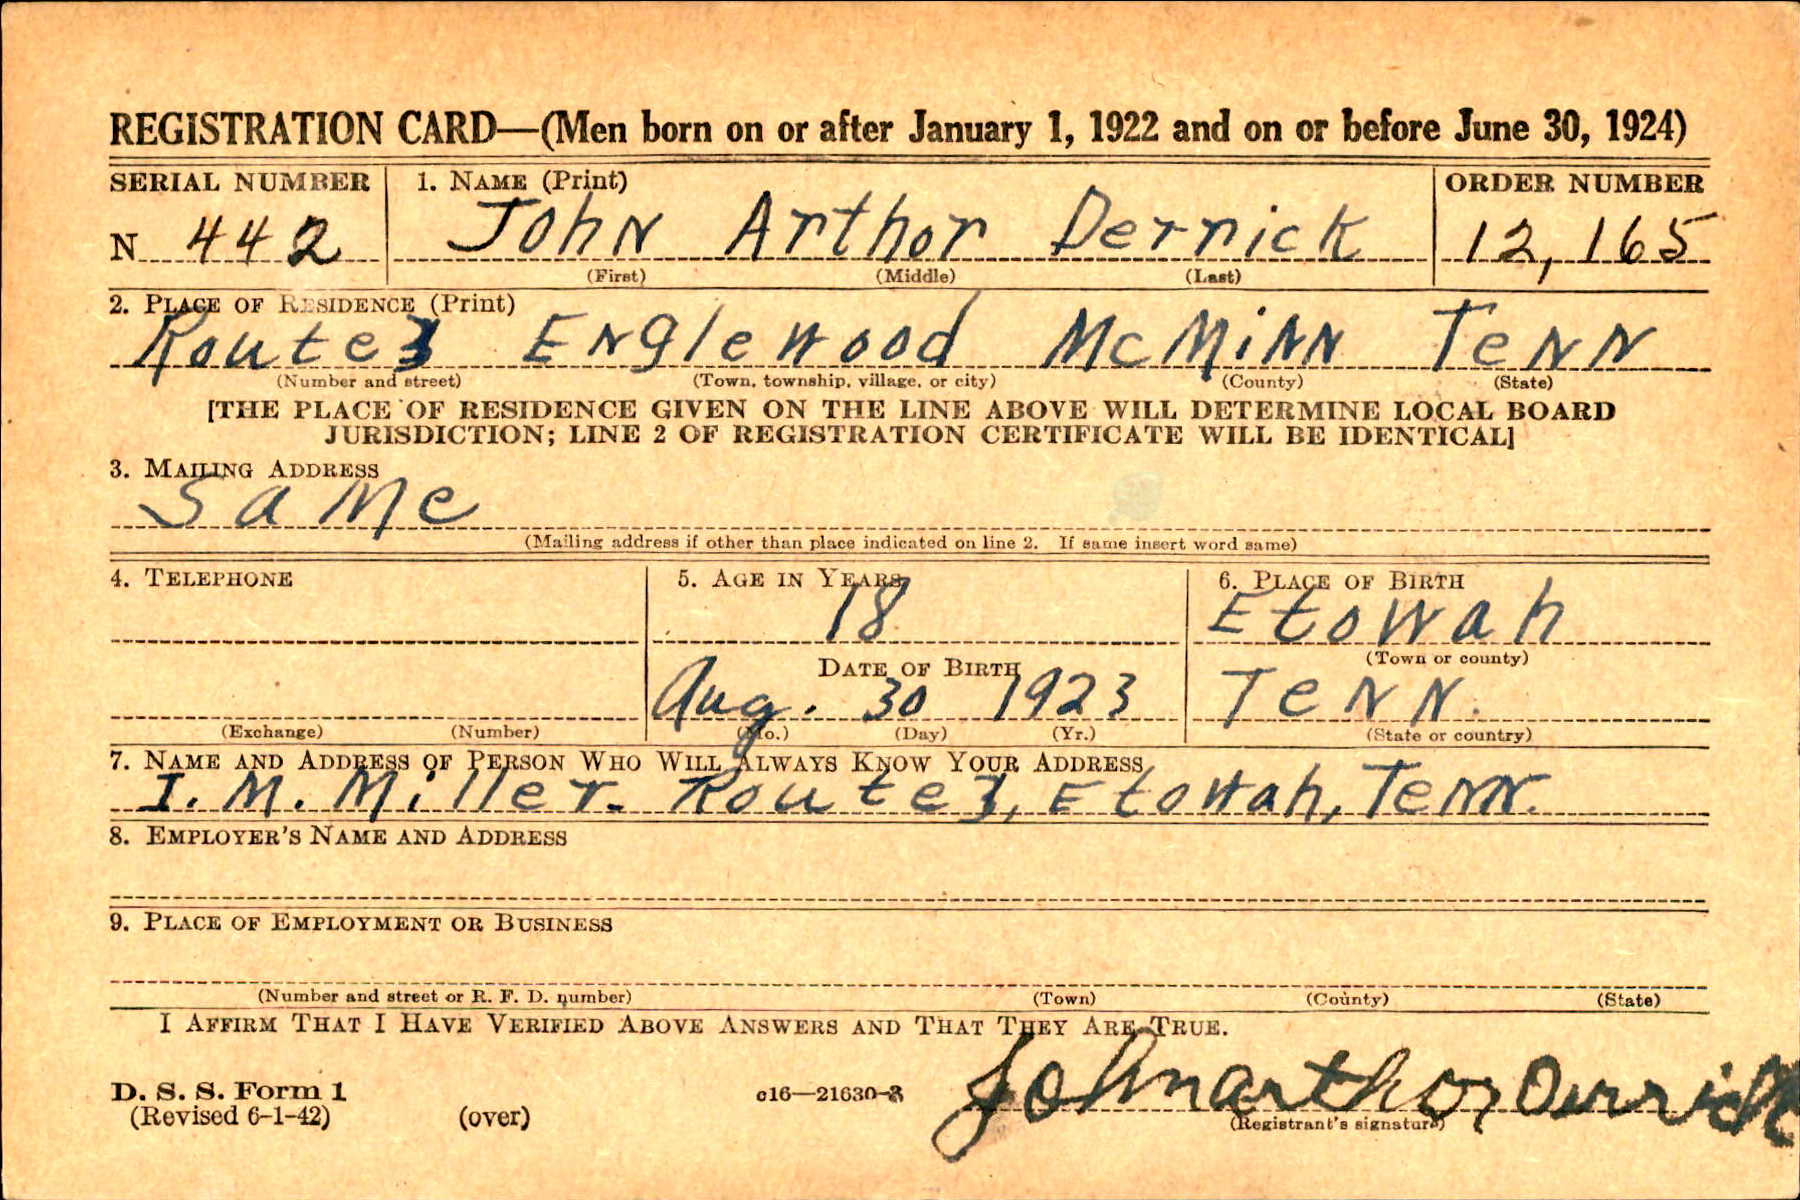 REGISTRATION CARD—(Men born on or after January 1, 1922 and on or before June 30, 1924)
SERIAL NUMBER 1. NAME (Print) ORDER NUMBER
N 442 John Arthor Derrick 12,165
(First) (Middle) (Last)
2. PLACE OF RESIDENCE (Print)
Route 3 Englewood McMinn Tenn
(Number and street) (Town, township, village, or city) (County) (State)
[THE PLACE OF RESIDENCE GIVEN ON THE LINE ABOVE WILL DETERMINE LOCAL BOARD
JURISDICTION; LINE 2 OF REGISTRATION CERTIFICATE WILL BE IDENTICAL]
3. MAILING ADDRESS
Same
(Mailing address if other than place indicated on line 2. If same insert word same)
4. TELEPHONE 5. AGE IN YEARS 6. PLACE OF BIRTH
18 Etowah
DATE OF BIRTH (Town or county)
Aug. 30 1923 Tenn.
(Exchange) (Number) (Mo.) (Day) (Yr.) (State or country)
7. NAME AND ADDRESS OF PERSON WHO WILL ALWAYS KNOW YOUR ADDRESS
I. M. Miller. Route 3, Etowah, Tenn.
8. EMPLOYER'S NAME AND ADDRESS
9. PLACE OF EMPLOYMENT OR BUSINESS
(Number and street or R. F. D. number) (Town) (County) (State)
I AFFIRM THAT I HAVE VERIFIED ABOVE ANSWERS AND THAT THEY ARE TRUE.
John arthor Derrick
D. S. S. Form 1 c16—21630-3
(Revised 6-1-42) (over) (Registrant's signature)